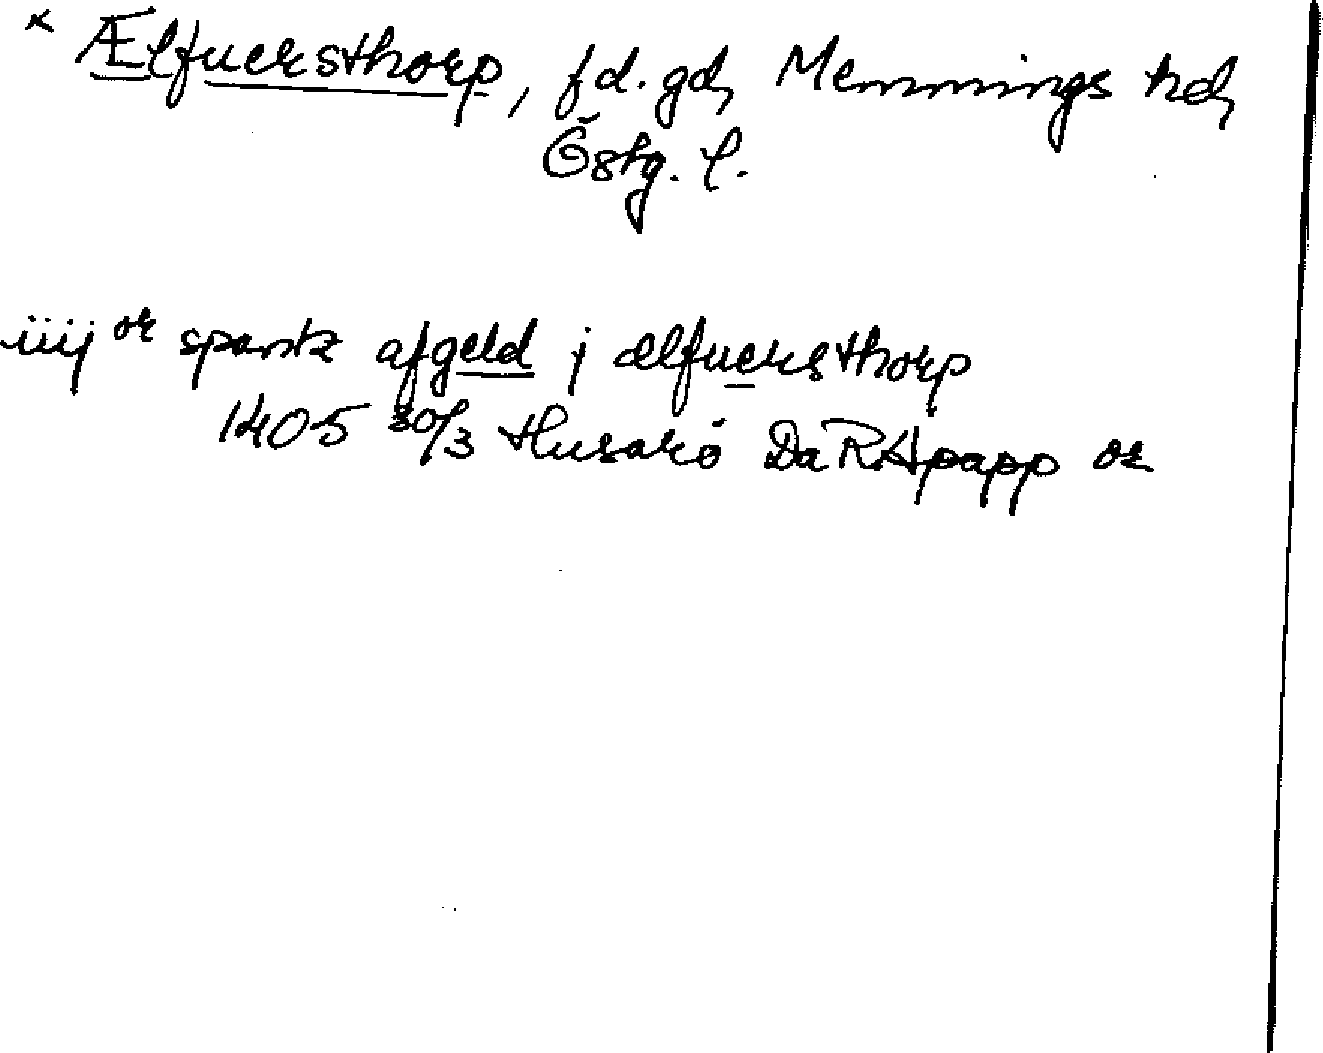 × Ælfuersthorp, f d. gd, Memmings hd,
Östg. l.
iiij or spantz afgeld j ælfuersthorp
1405 30/3 Husarö DaRApapp or